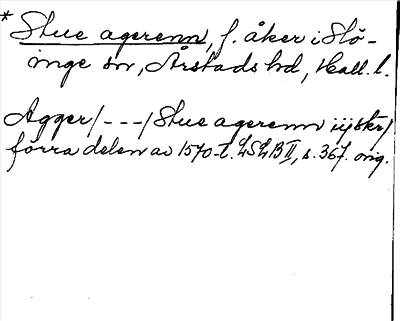 * Stue agerenn, f. åker i Slö-
inge sn, Årstads hd, Hall. l.
Agger/---/Stue agerenn iij skr/
förra delen av 1570-t. LSLB II, s. 367. orig.